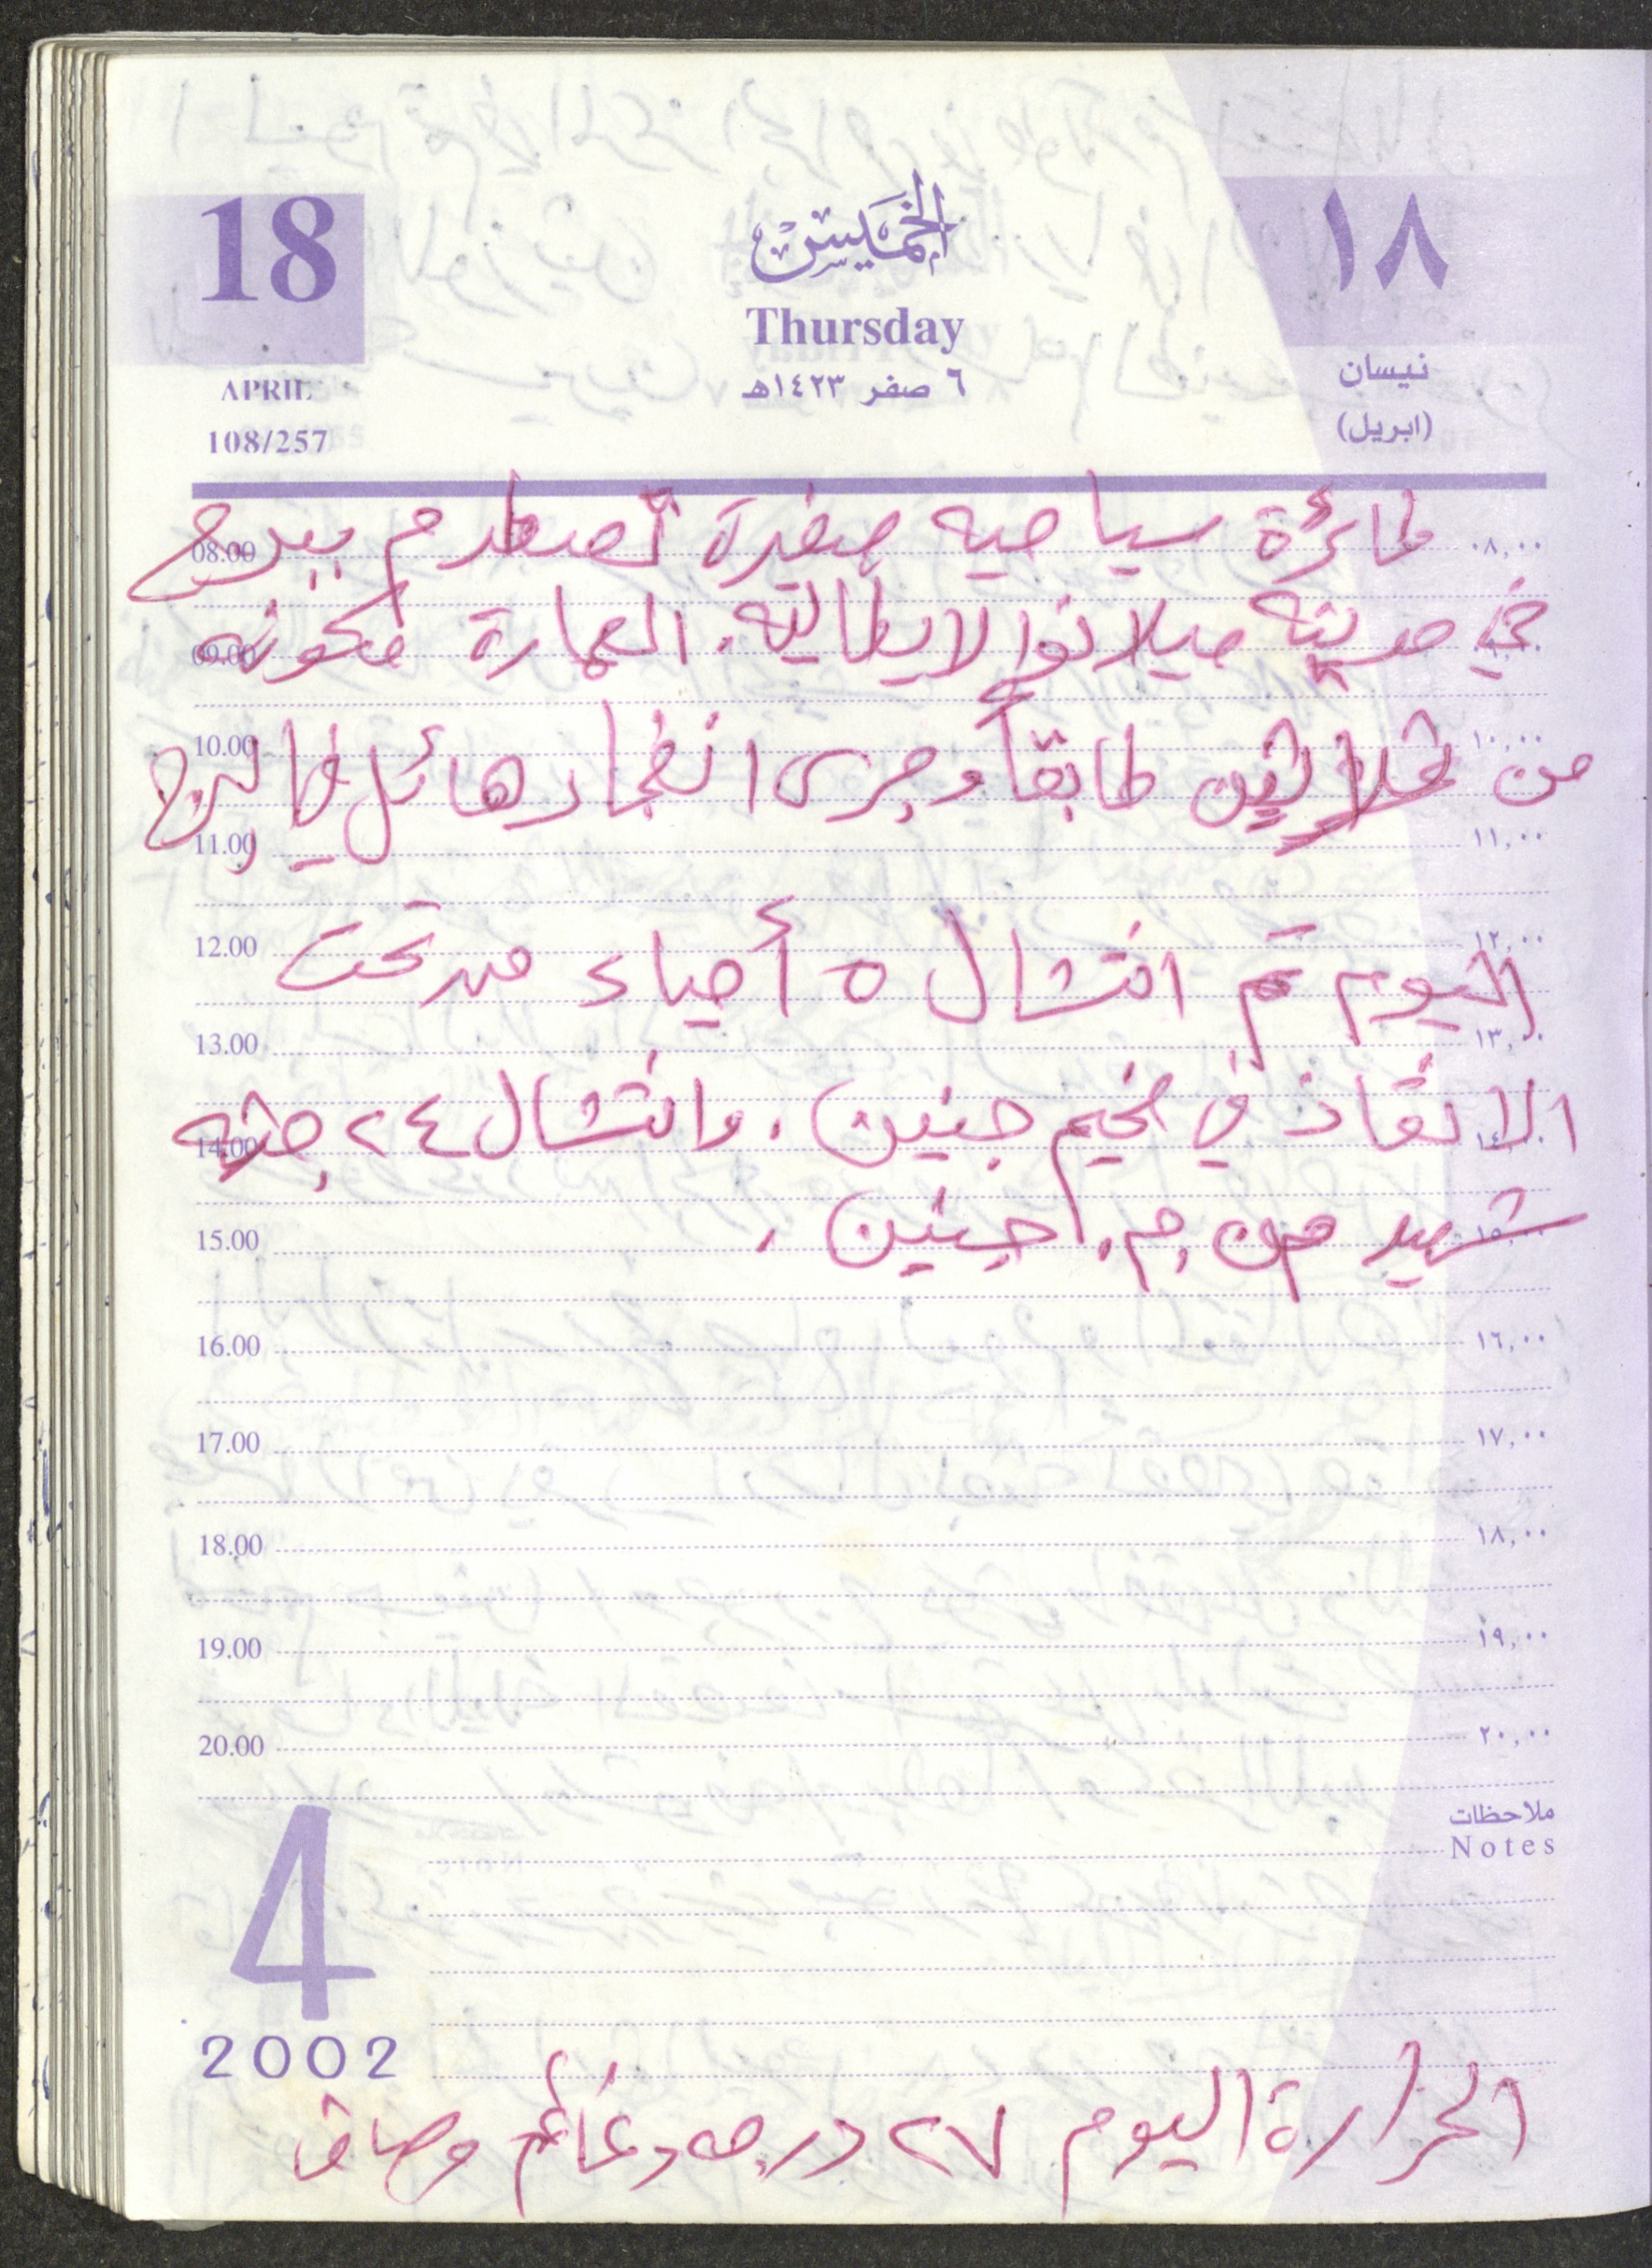 18
الخميس
١٨
Thursday
APRIL
٦ صفر ١٤٢٣هـ
نيسان
108/257
(ابريل)
08.00 طائرة سياحيه صغيرة تصطدم ببرج ٠٨,٠٠
09.00 في مدينه ميلانوا الايطاليه. العمارة مكونه
10.00 من ثلاثين طابقاً وجرى انفجار هائل في البرج ١٠,٠٠
11.00 ١١,٠٠
12.00 اليوم تم انتشال ٥ أحياء من تحت ١٢,٠٠
13.00 ١٣,٠٠
14.00 الانقاذ في مخيم جنين. وانتشال ٢٤ جثه ١٤,٠٠
15.00 شهيد من م. جنين. ١٥,٠٠
16.00 ١٦,٠٠
17.00 ١٧,٠٠
18.00 ١٨,٠٠
19.00 ١٩,٠٠
20.00 ٢٠,٠٠
ملاحظات
Notes
4
2002
الحرارة اليوم ٢٧ درجه وغائم وصاف